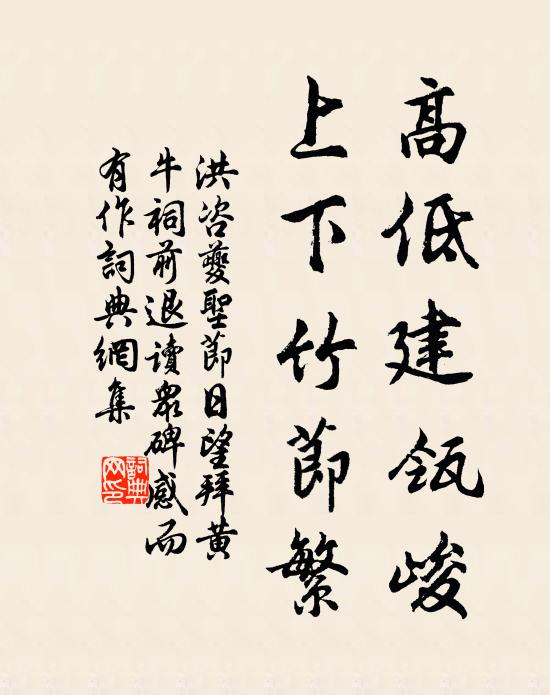 高低建瓴峻
上下竹節繁
洪咨夔聖節日望拜黃
牛祠前退讀眾碑感而
有作詞典網集
詞典網印